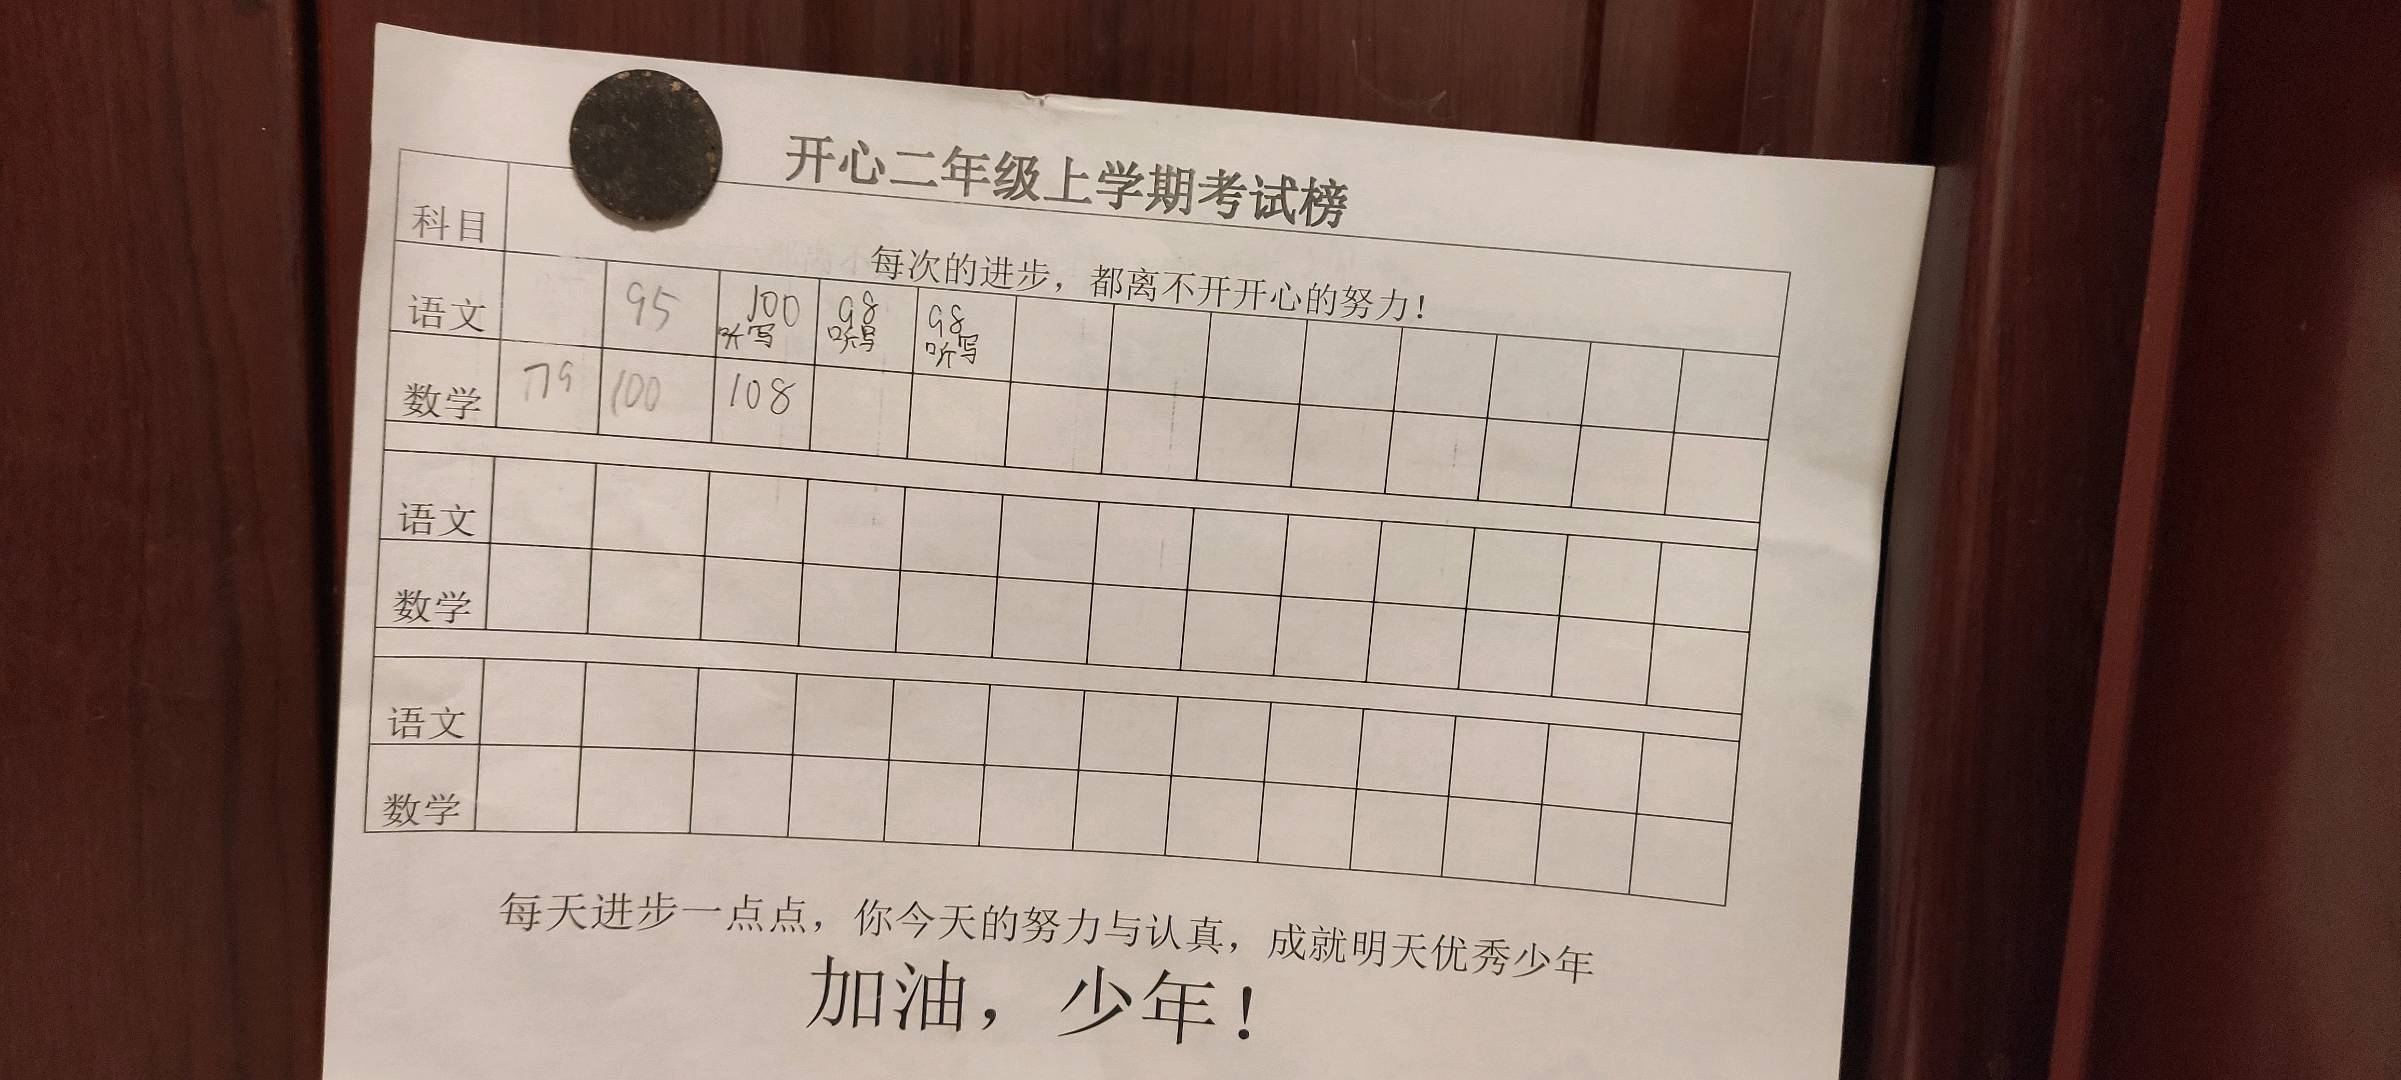 开心二年级上学期考试榜
科目
每次的进步，都离不开开心的努力！
语文 95 100听写 98听写 98听写
数学 79 100 108
语文
数学
语文
数学
每天进步一点点，你今天的努力与认真，成就明天优秀少年
加油，少年！